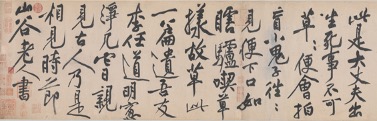 此是大丈夫出
生死事不可
草〻便會拍
盲小鬼子往〻
見便下口如
瞎驢喫草
樣故草此
一篇遺吾友
李任道明窗
淨几它日親
見古人乃是
相見時節
山谷老人書